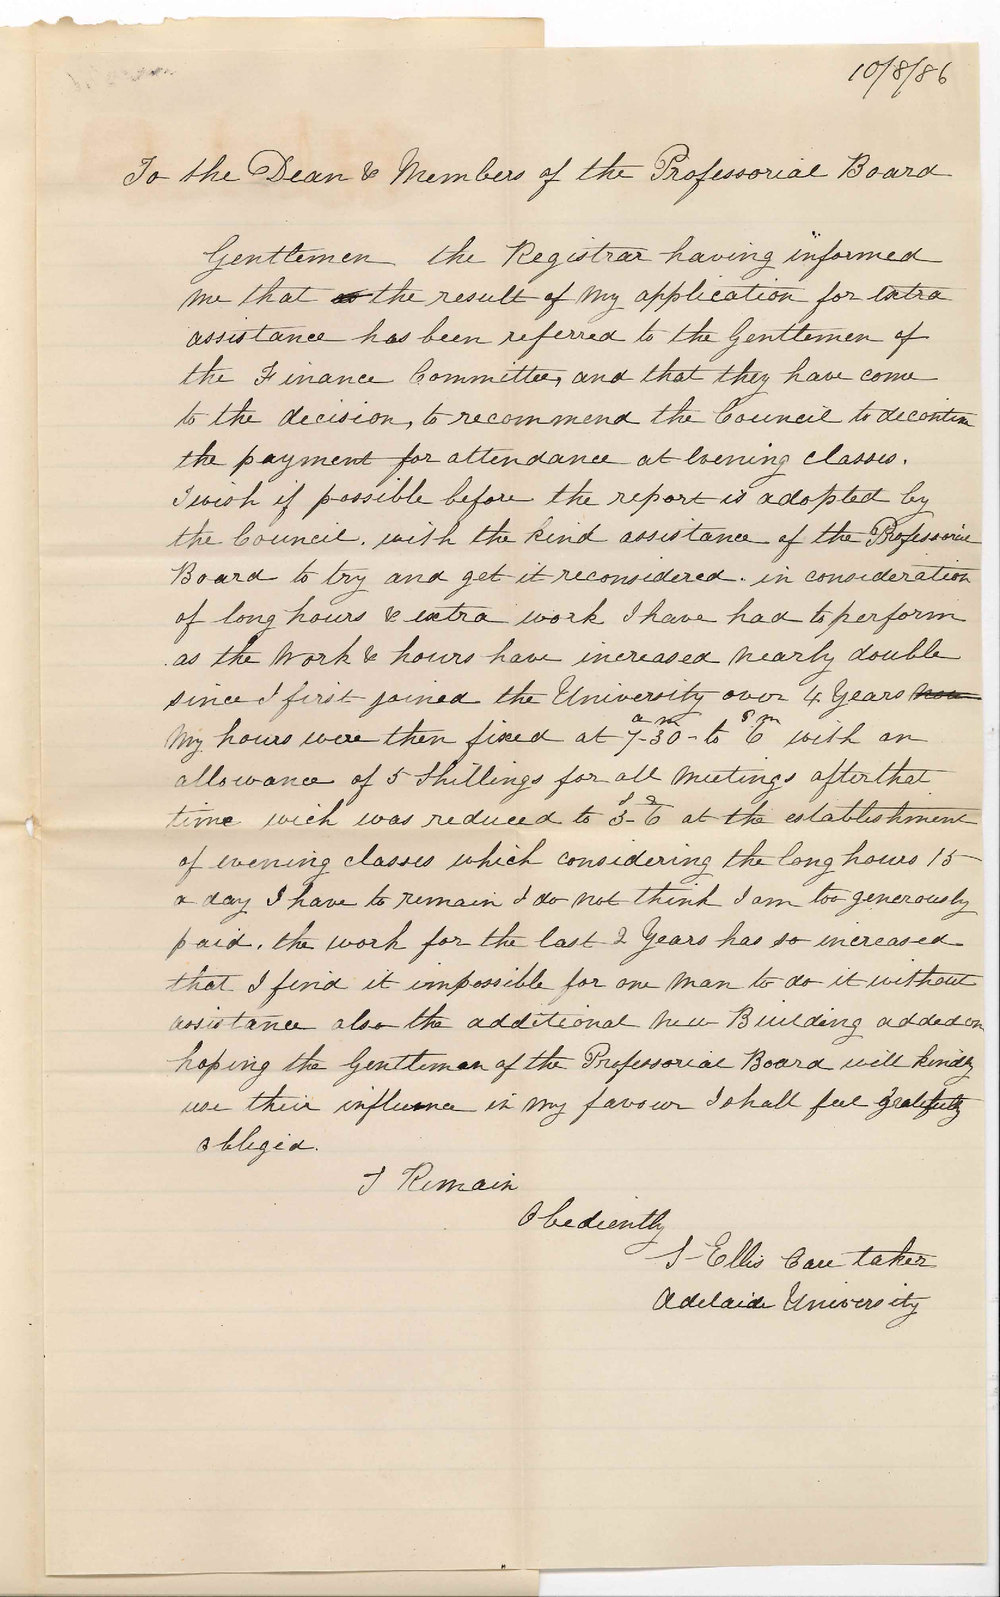 10/8/86
To the Dean & Members of the Professorial Board
Gentlemen the Registrar having informed
me that the result of my application for extra
assistance has been referred to the Gentlemen of
the Finance Committee, and that they have come
to the decision, to recommend the Council to decontinu
the payment for attendance at Evening classes.
I wish if possible before the report is adopted by
the Council. with the kind assistance of the Professorial
Board to try and get it reconsidered. in consideration
of long hours & extra work I have had to perform
as the Work & hours have increased nearly double
since I first joined the University over 4 Years now
My hours were then fixed at 7-30 am to 6 pm with an
allowance of 5 Shillings for all Meetings after that
time wich was reduced to 3s-6d at the establishment
of evening classes which considering the long hours 15
a day I have to remain I do not think I am too generously
paid. the work for the last 2 Years has so increased
that I find it impossible for one man to do it without
assistance also the additional new Building added on
hoping the Gentlemen of the Professorial Board will kindly
use their influence in my favour I shall feel gratefully
obliged.
I Remain
Obediently
Ellis Care taker
Adelaide University